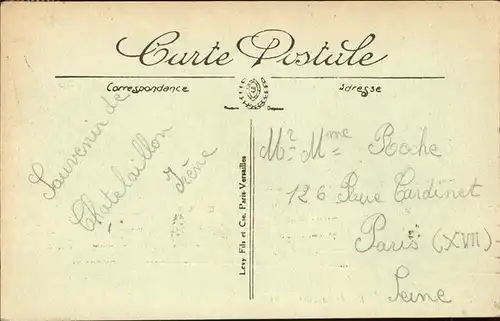 Carte Postale
Correspondance
Adresse
Souvenir de
Chatelaillon
Irène
Levy Fils et Cie, Paris-Versailles
Mr Mme Roche
126 Rue Cardinet
Paris (XVII)
Seine